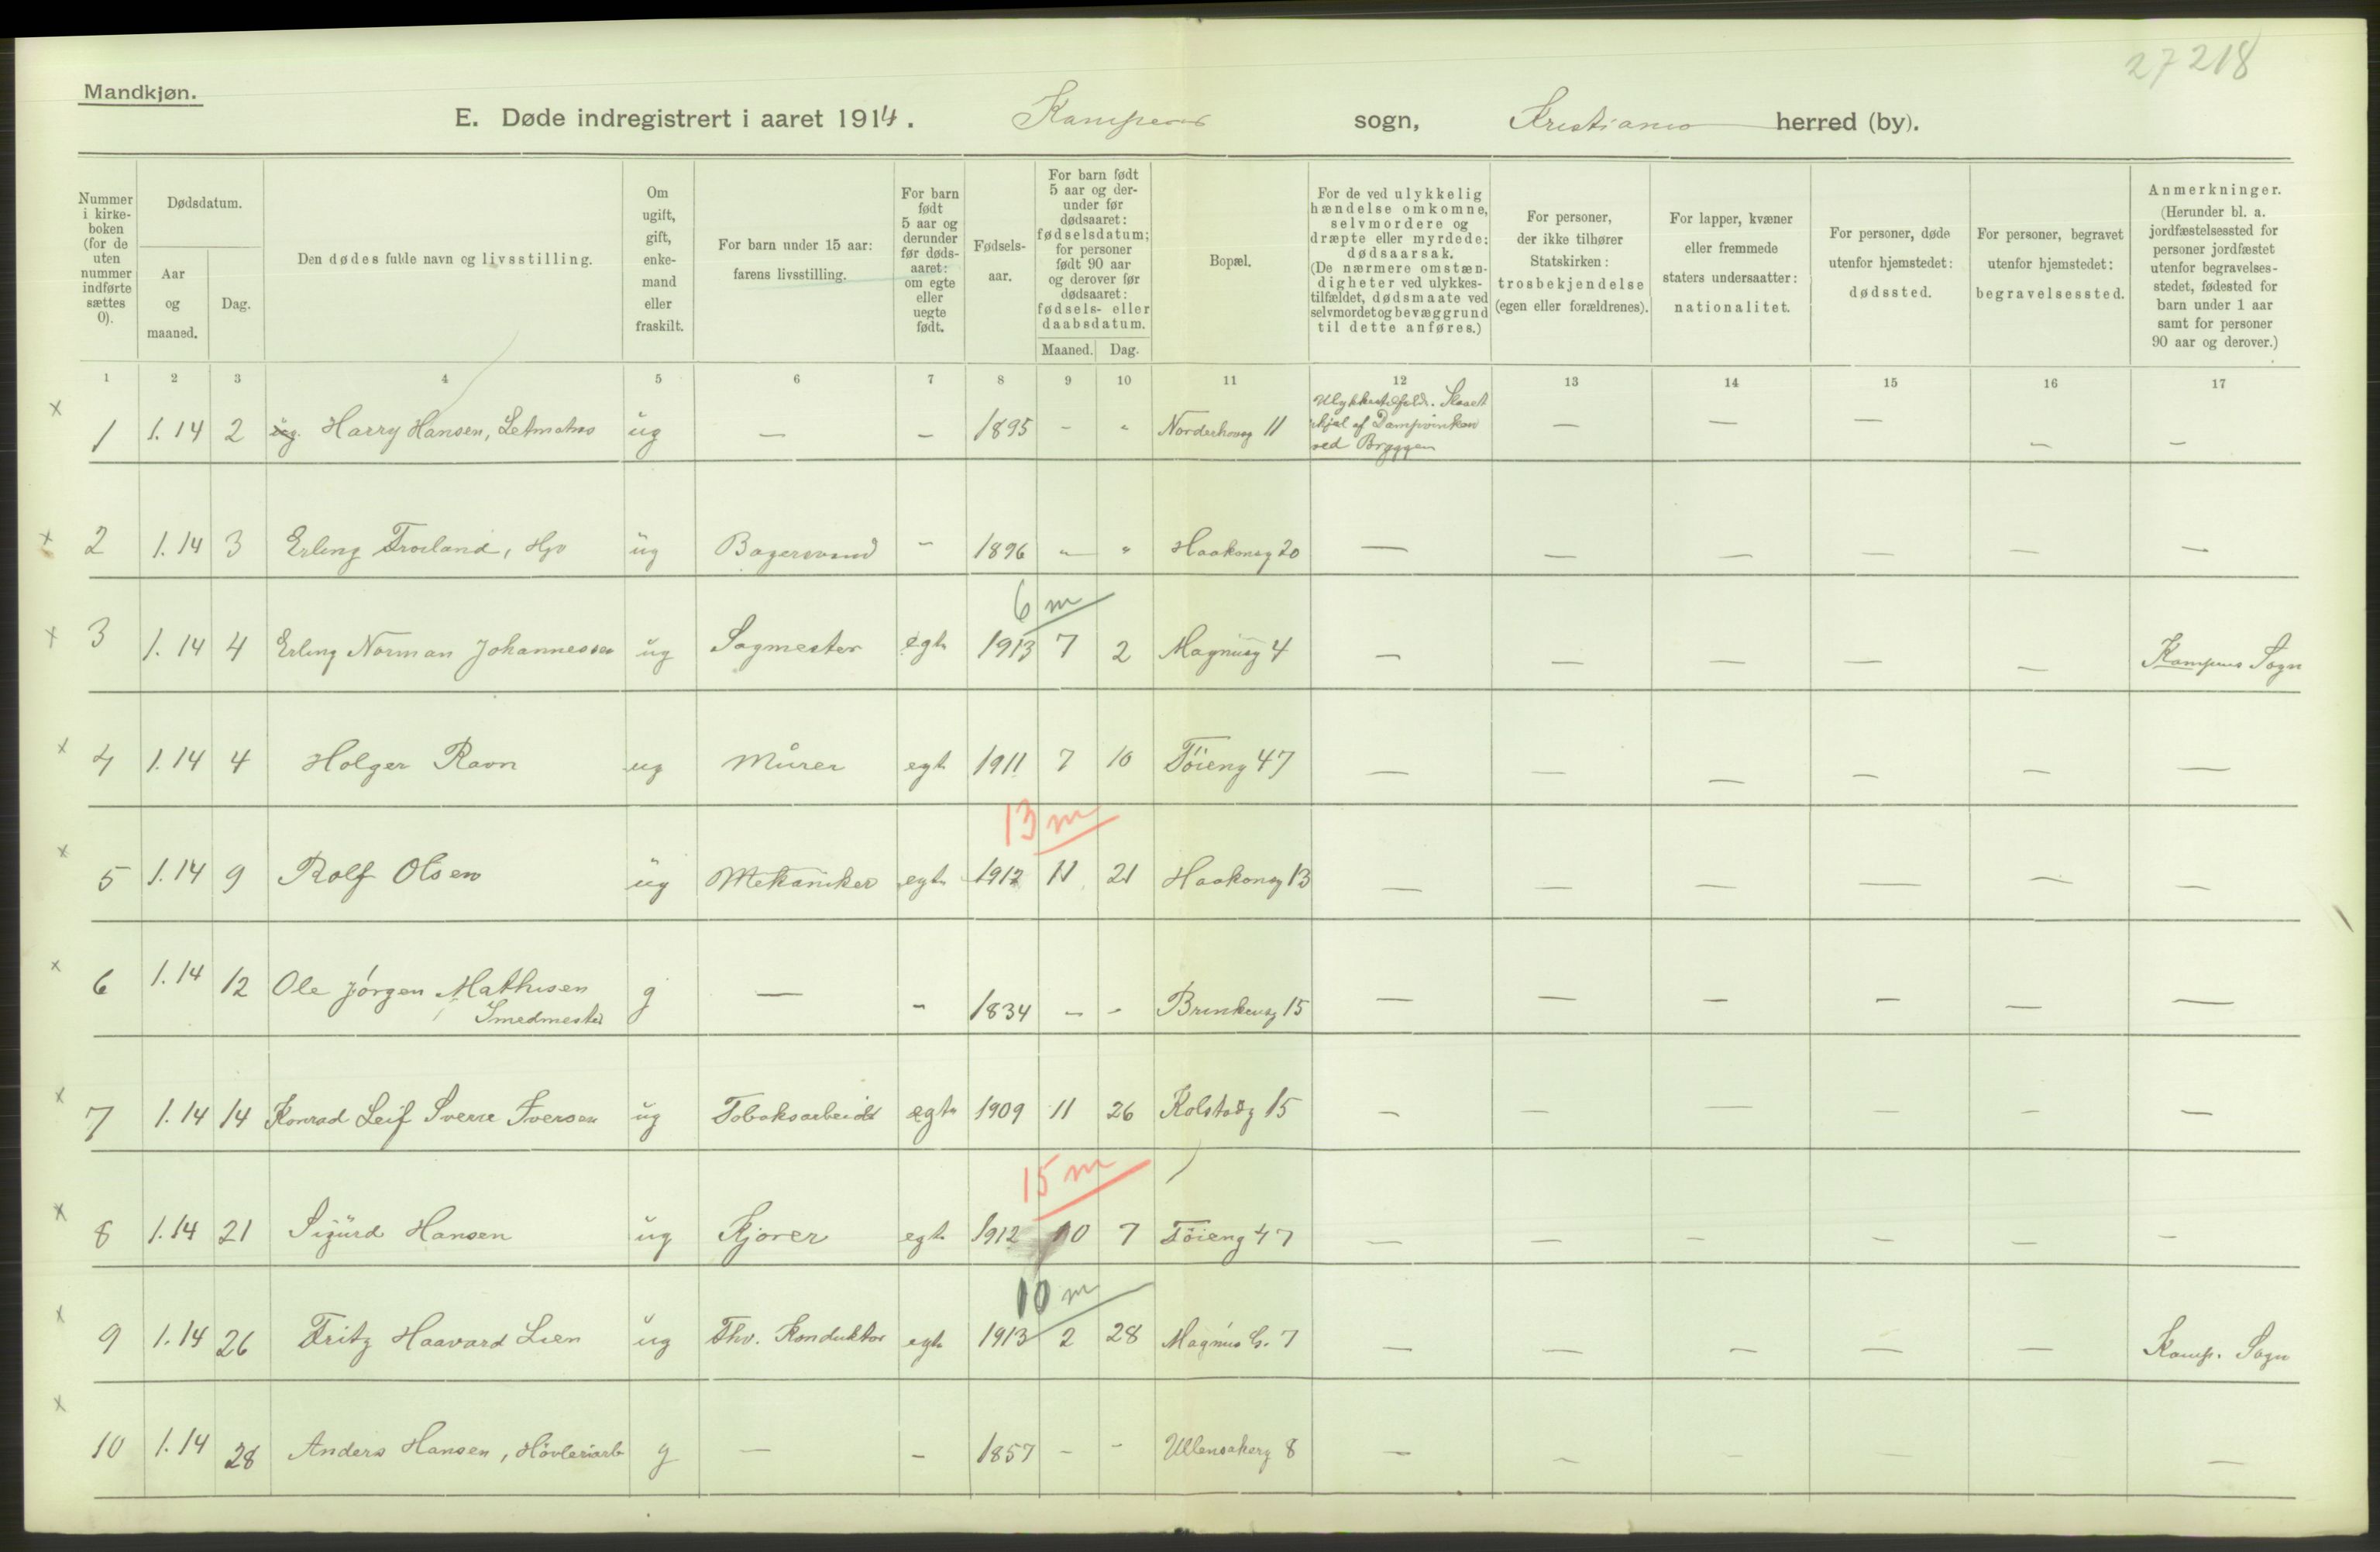 27218
Mandkjøn.
E. Døde indregistrert i aaret 1914. Kampens sogn, Kristiania herred (by).
Nummer i kirke-boken (for de uten nummer indførte sættes 0).
Dødsdatum.
Aar og maaned.
Dag.
Den dødes fulde navn og livsstilling.
Om ugift, gift, enke-mand eller fraskilt.
For barn under 15 aar: farens livsstilling.
For barn født 5 aar og derunder før døds-aaret: om egte eller uegte født.
Fødsels-aar.
For barn født 5 aar og der-under før dødsaaret: fødselsdatum; for personer født 90 aar og derover før dødsaaret: fødsels- eller daabsdatum.
Maaned. Dag.
Bopæl.
For de ved ulykkelig hændelse omkomne, selvmordere og dræpte eller myrdede: dødsaarsak. (De nærmere omstæn-digheter ved ulykkes-tilfældet, dødsmaate ved selvmordet og bevæggrund til dette anføres.)
For personer, der ikke tilhører Statskirken: trosbekjendelse (egen eller forældrenes).
For lapper, kvæner eller fremmede staters undersaatter: nationalitet.
For personer, døde utenfor hjemstedet: dødssted.
For personer, begravet utenfor hjemstedet: begravelsessted.
Anmerkninger. (Herunder bl. a. jordfæstelsessted for personer jordfæstet utenfor begravelses-stedet, fødested for barn under 1 aar samt for personer 90 aar og derover.)
1 2 3 4 5 6 7 8 9 10 11 12 13 14 15 16 17
x 1 1.14 2 Harry Hansen, Letmatros ug — — 1895 - " Norderhovg 11 Ulykkestilfeld. Slaaet ihjel af Dampvinken ved Bryggen — — — — —
x 2 1.14 3 Erling Froiland, ug — 1896 " " Haakonsg 20 — — — — — —
6 m
x 3 1.14 4 Erling Norman Johannessen ug Sagmester egte 1913 7 2 Magnusg 4 — — — — — Kampens Sogn
x 4 1.14 4 Holger Ravn ug Murer egt. 1911 7 10 Töieng 47 — — — — — —
13 m
x 5 1.14 9 Rolf Olsen ug Mekaniker egte 1912 11 21 Haakonsg 13 — — — — — —
x 6 1.14 12 Ole Jörgen Mathisen g — — 1834 - - Brinkensg 15 — — — — — —
Smedmester
x 7 1.14 14 Konrad Leif Sverre Iversen ug Tobaksarbeider egte 1909 11 26 Kolstadg 15 — — — — — —
15 m
x 8 1.14 21 Sigurd Hansen ug Kjörer egte 1912 10 7 Töieng 47 — — — — — —
10 m
x 9 1.14 26 Fritz Haavard Lien ug Konduktør egte 1913 2 28 Magnus G. 7 — — — — — Kamp. Sogn
x 10 1.14 28 Anders Hansen, Hövleriarb g — — 1857 - - Ullensakerg 8 — — — — — —